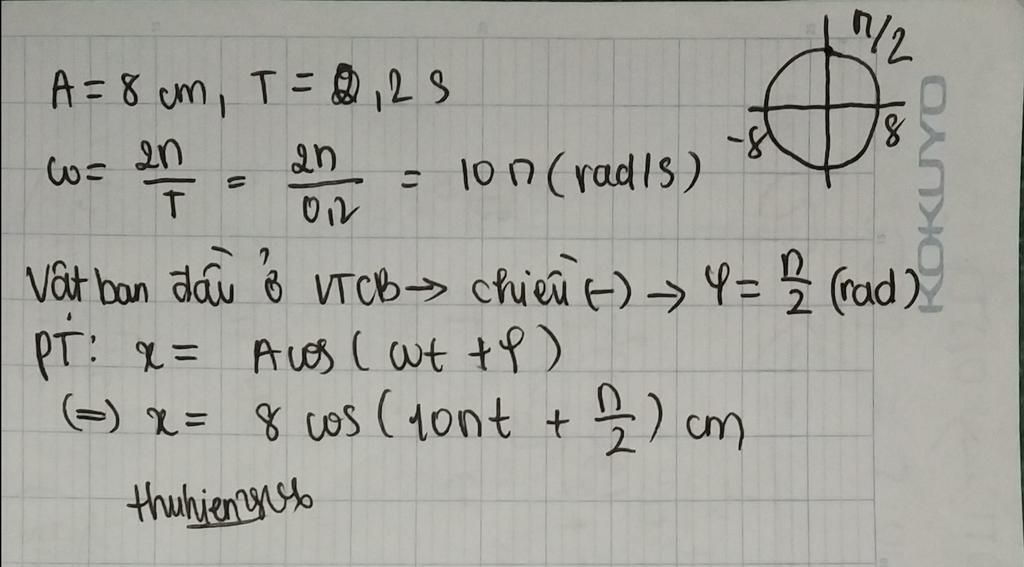 A = 8 cm, T = 0,2 s
π/2
-8
8
ω = 2π/T = 2π/0,2 = 10π (rad/s)
Vật ban đầu ở VTCB → chiều (-) → φ = π/2 (rad)
PT: x = Acos (ωt + φ)
(=) x = 8 cos (10πt + π/2) cm
KOKUYO